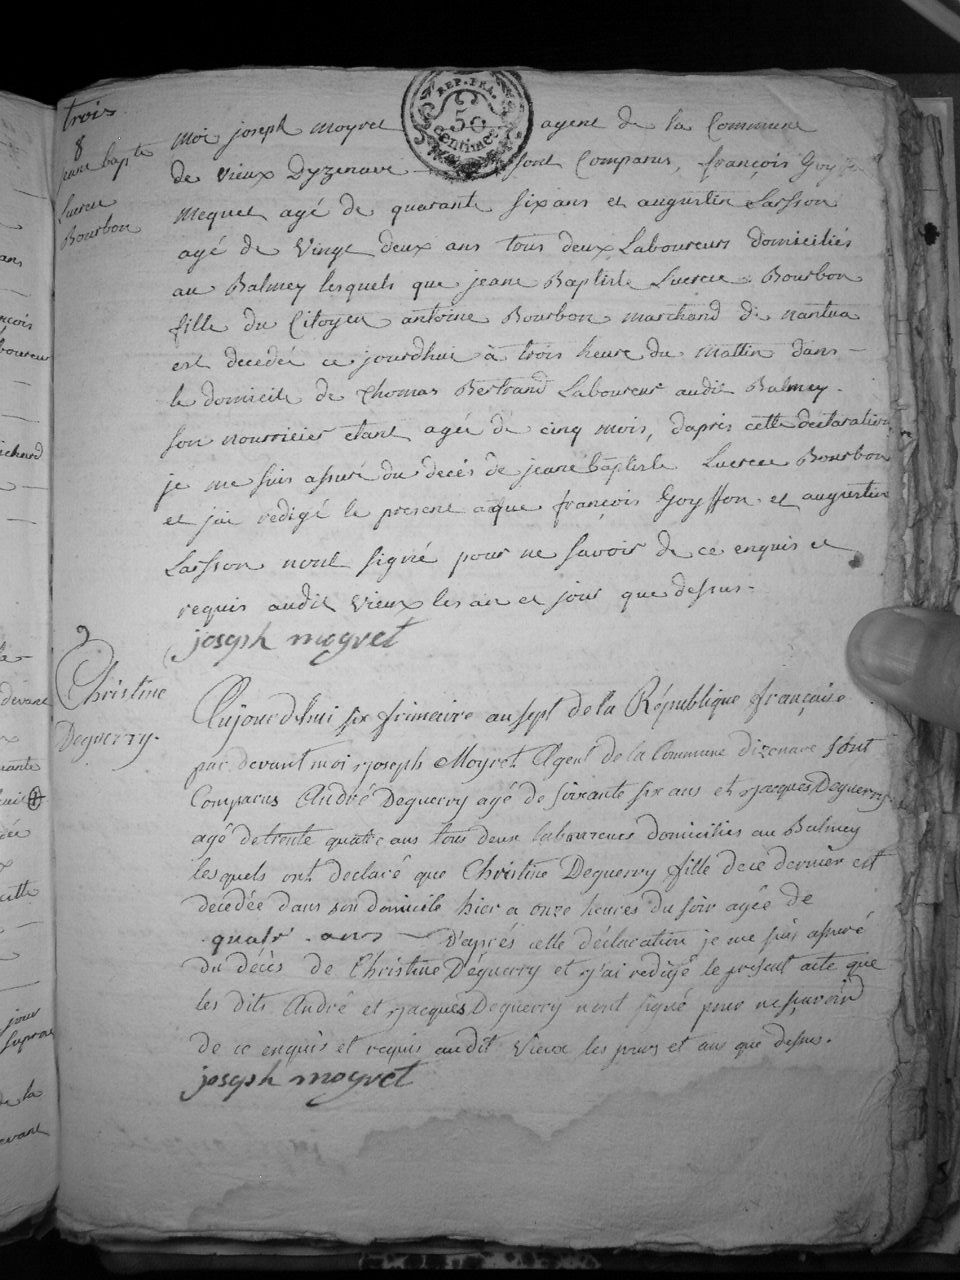 trois
8
jeane bapte
Lucrece
Bourbon
REP. FRA.
50
centimes
Moi joseph moyret agent de la Commune
de vieux Dyzenave sont Comparus, françois Goyffon
Mequet agé de quarante six ans et augustin Larsson
agé de vingt deux ans tous deux Laboureurs domiciliés
au Balmey lesquels que jeane Baptiste Lucrece Bourbon
fille du Citoyen antoine Bourbon marchand di nantua
est decedée ce jourdhui à trois heure du mattin dans
le domicile de Thomas Bertrand Laboureur audit Balmey.
son nourricier etant agée de cinq mois, dapres cette declaration
je me suis assuré du décés de jeane baptiste Lucrece Bourbon
et jai redigé le present aque françois Goyffon et augustin
Larsson nont signé pour ne savoir de ce enquis et
requis audit vieux les an et jour que dessus.
joseph moyret
9
Christine
Deguerry.
Aujourdhui six frimaire an sept de la République française
par devant moi joseph Moyret Agent de la Commune dizenave sont
Comparus André Deguerry agé de soixante six ans et jacques Deguerry
agé de trente quatre ans tous deux laboureurs domiciliés au Balmey
lesquels ont declaré que Christine Deguerry fille de ce dernier est
decédée dans son domicile hier a onze heures du soir agée de
quatr ans D'aprés cette déclaration je me suis assuré
du décès de Christine Déguerry et j'ai redigé le present acte que
les dits André et jacques Deguerry nont signé pour ne savoir
de ce enquis et requis audit vieux les jours et an que dessus.
joseph moyret